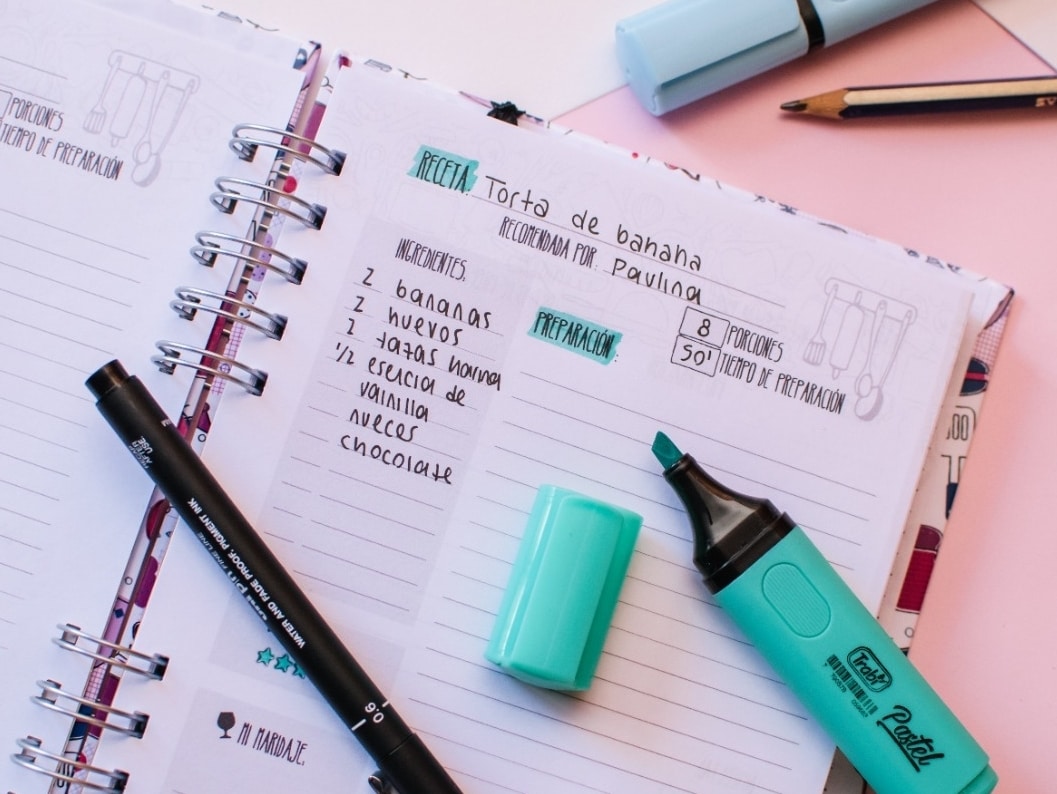 PORCIONES
TIEMPO DE PREPARACIÓN
RECETA: Torta de banana
RECOMENDADA POR: Paulina
INGREDIENTES:
2 bananas
2 huevos
2 tazas harina
1/2 esencia de
vainilla
nueces
chocolate
PREPARACIÓN:
8 PORCIONES
50' TIEMPO DE PREPARACIÓN
MI MARIDAJE:
AFTER
USE
PiN FINE LINE
WATER AND FADE PROOF, PIGMENT INK
0.6
Trabi
Pastel